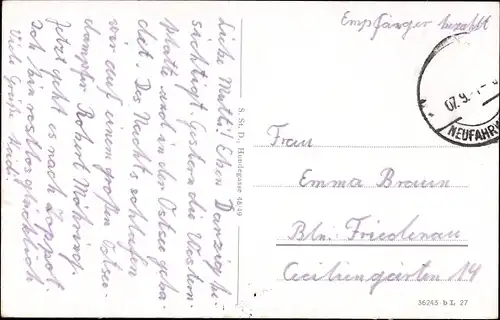 Empfänger bezahlt
07.9.
NEUFAHR
Liebe Mutti! Eben Danzig be-
sichtigt. Gestern die Western-
platte und in der Ostsee geba-
det. Des Nachts schlafen
wir auf einem großen Ostsee-
dampfer Robert Möhring.
Jetzt geht es nach Zoppot.
Ich bin restlos glücklich
Viele Grüße
S. St. D., Hundegasse 48/49
Frau
Emma Braun
Bln. Friedenau
Ceciliengärten 14
36243 b L 27